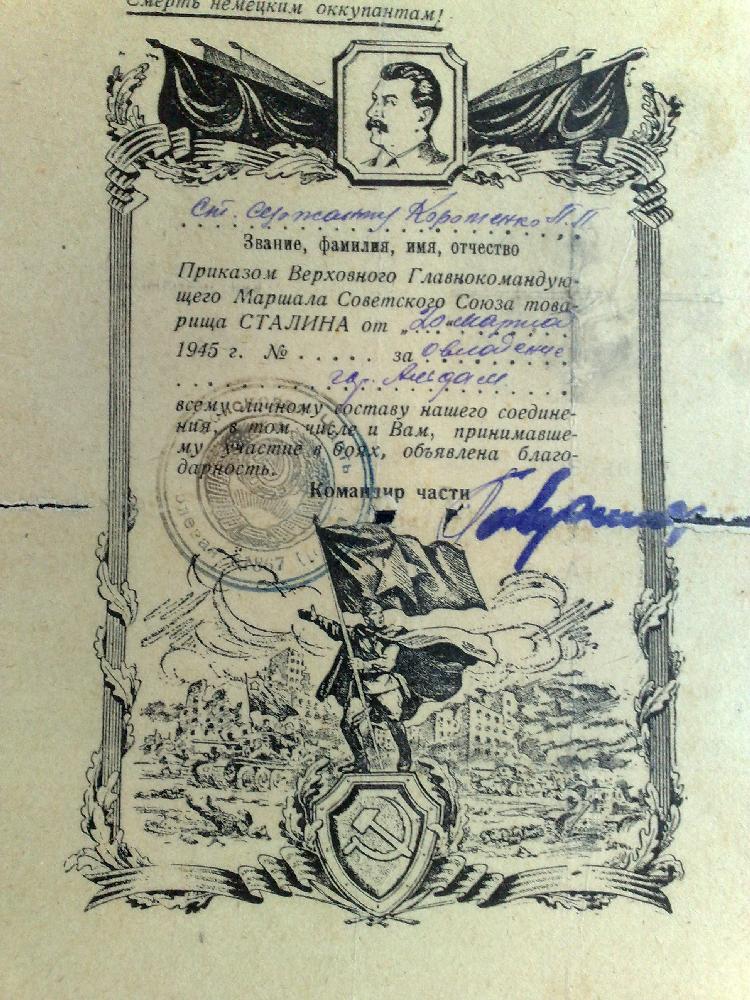 Смерть немецким оккупантам!
Ст. сержанту Коротенко П.П
Звание, фамилия, имя, отчество
Приказом Верховного Главнокомандую-
щего Маршала Советского Союза това-
рища СТАЛИНА от „20" марта
1945 г. № . . . . . за овладение
гор. Альдам
всему личному составу нашего соедине-
ния, в том числе и Вам, принимавше-
му участие в боях, объявлена благо-
дарность.
Командир части